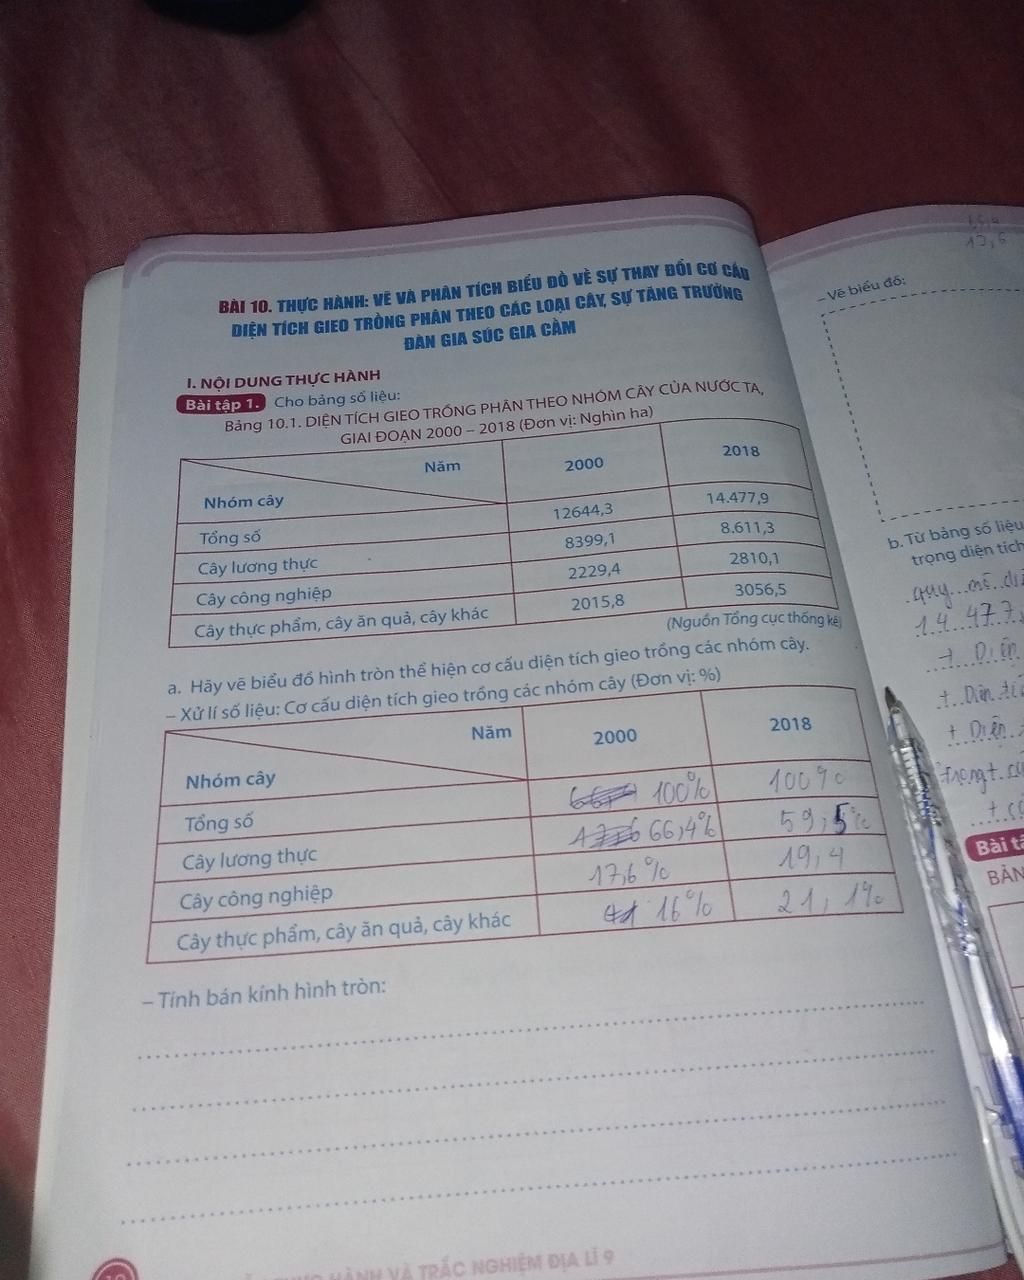 BÀI 10. THỰC HÀNH: VẼ VÀ PHÂN TÍCH BIỂU ĐỒ VỀ SỰ THAY ĐỔI CƠ CẤU
DIỆN TÍCH GIEO TRỒNG PHÂN THEO CÁC LOẠI CÂY, SỰ TĂNG TRƯỞNG
ĐÀN GIA SÚC GIA CẦM
I. NỘI DUNG THỰC HÀNH
Bài tập 1. Cho bảng số liệu:
Bảng 10.1. DIỆN TÍCH GIEO TRỒNG PHÂN THEO NHÓM CÂY CỦA NƯỚC TA,
GIAI ĐOẠN 2000 – 2018 (Đơn vị: Nghìn ha)
Năm 2000 2018
Nhóm cây
Tổng số 12644,3 14.477,9
Cây lương thực 8399,1 8.611,3
Cây công nghiệp 2229,4 2810,1
Cây thực phẩm, cây ăn quả, cây khác 2015,8 3056,5
(Nguồn Tổng cục thống kê)
a. Hãy vẽ biểu đồ hình tròn thể hiện cơ cấu diện tích gieo trồng các nhóm cây.
– Xử lí số liệu: Cơ cấu diện tích gieo trồng các nhóm cây (Đơn vị: %)
Năm 2000 2018
Nhóm cây
Tổng số 100% 100%
Cây lương thực 66,4% 59,5%
Cây công nghiệp 17,6% 19,4
Cây thực phẩm, cây ăn quả, cây khác 16% 21,1%
– Tính bán kính hình tròn:
HÀNH VÀ TRẮC NGHIỆM ĐỊA LÍ 9
13,6
– Vẽ biểu đồ:
b. Từ bảng số liệu
trọng diện tích
quy mô
14.477,
+ Diện
+ Diện
+ Diện
Bài
BẢN